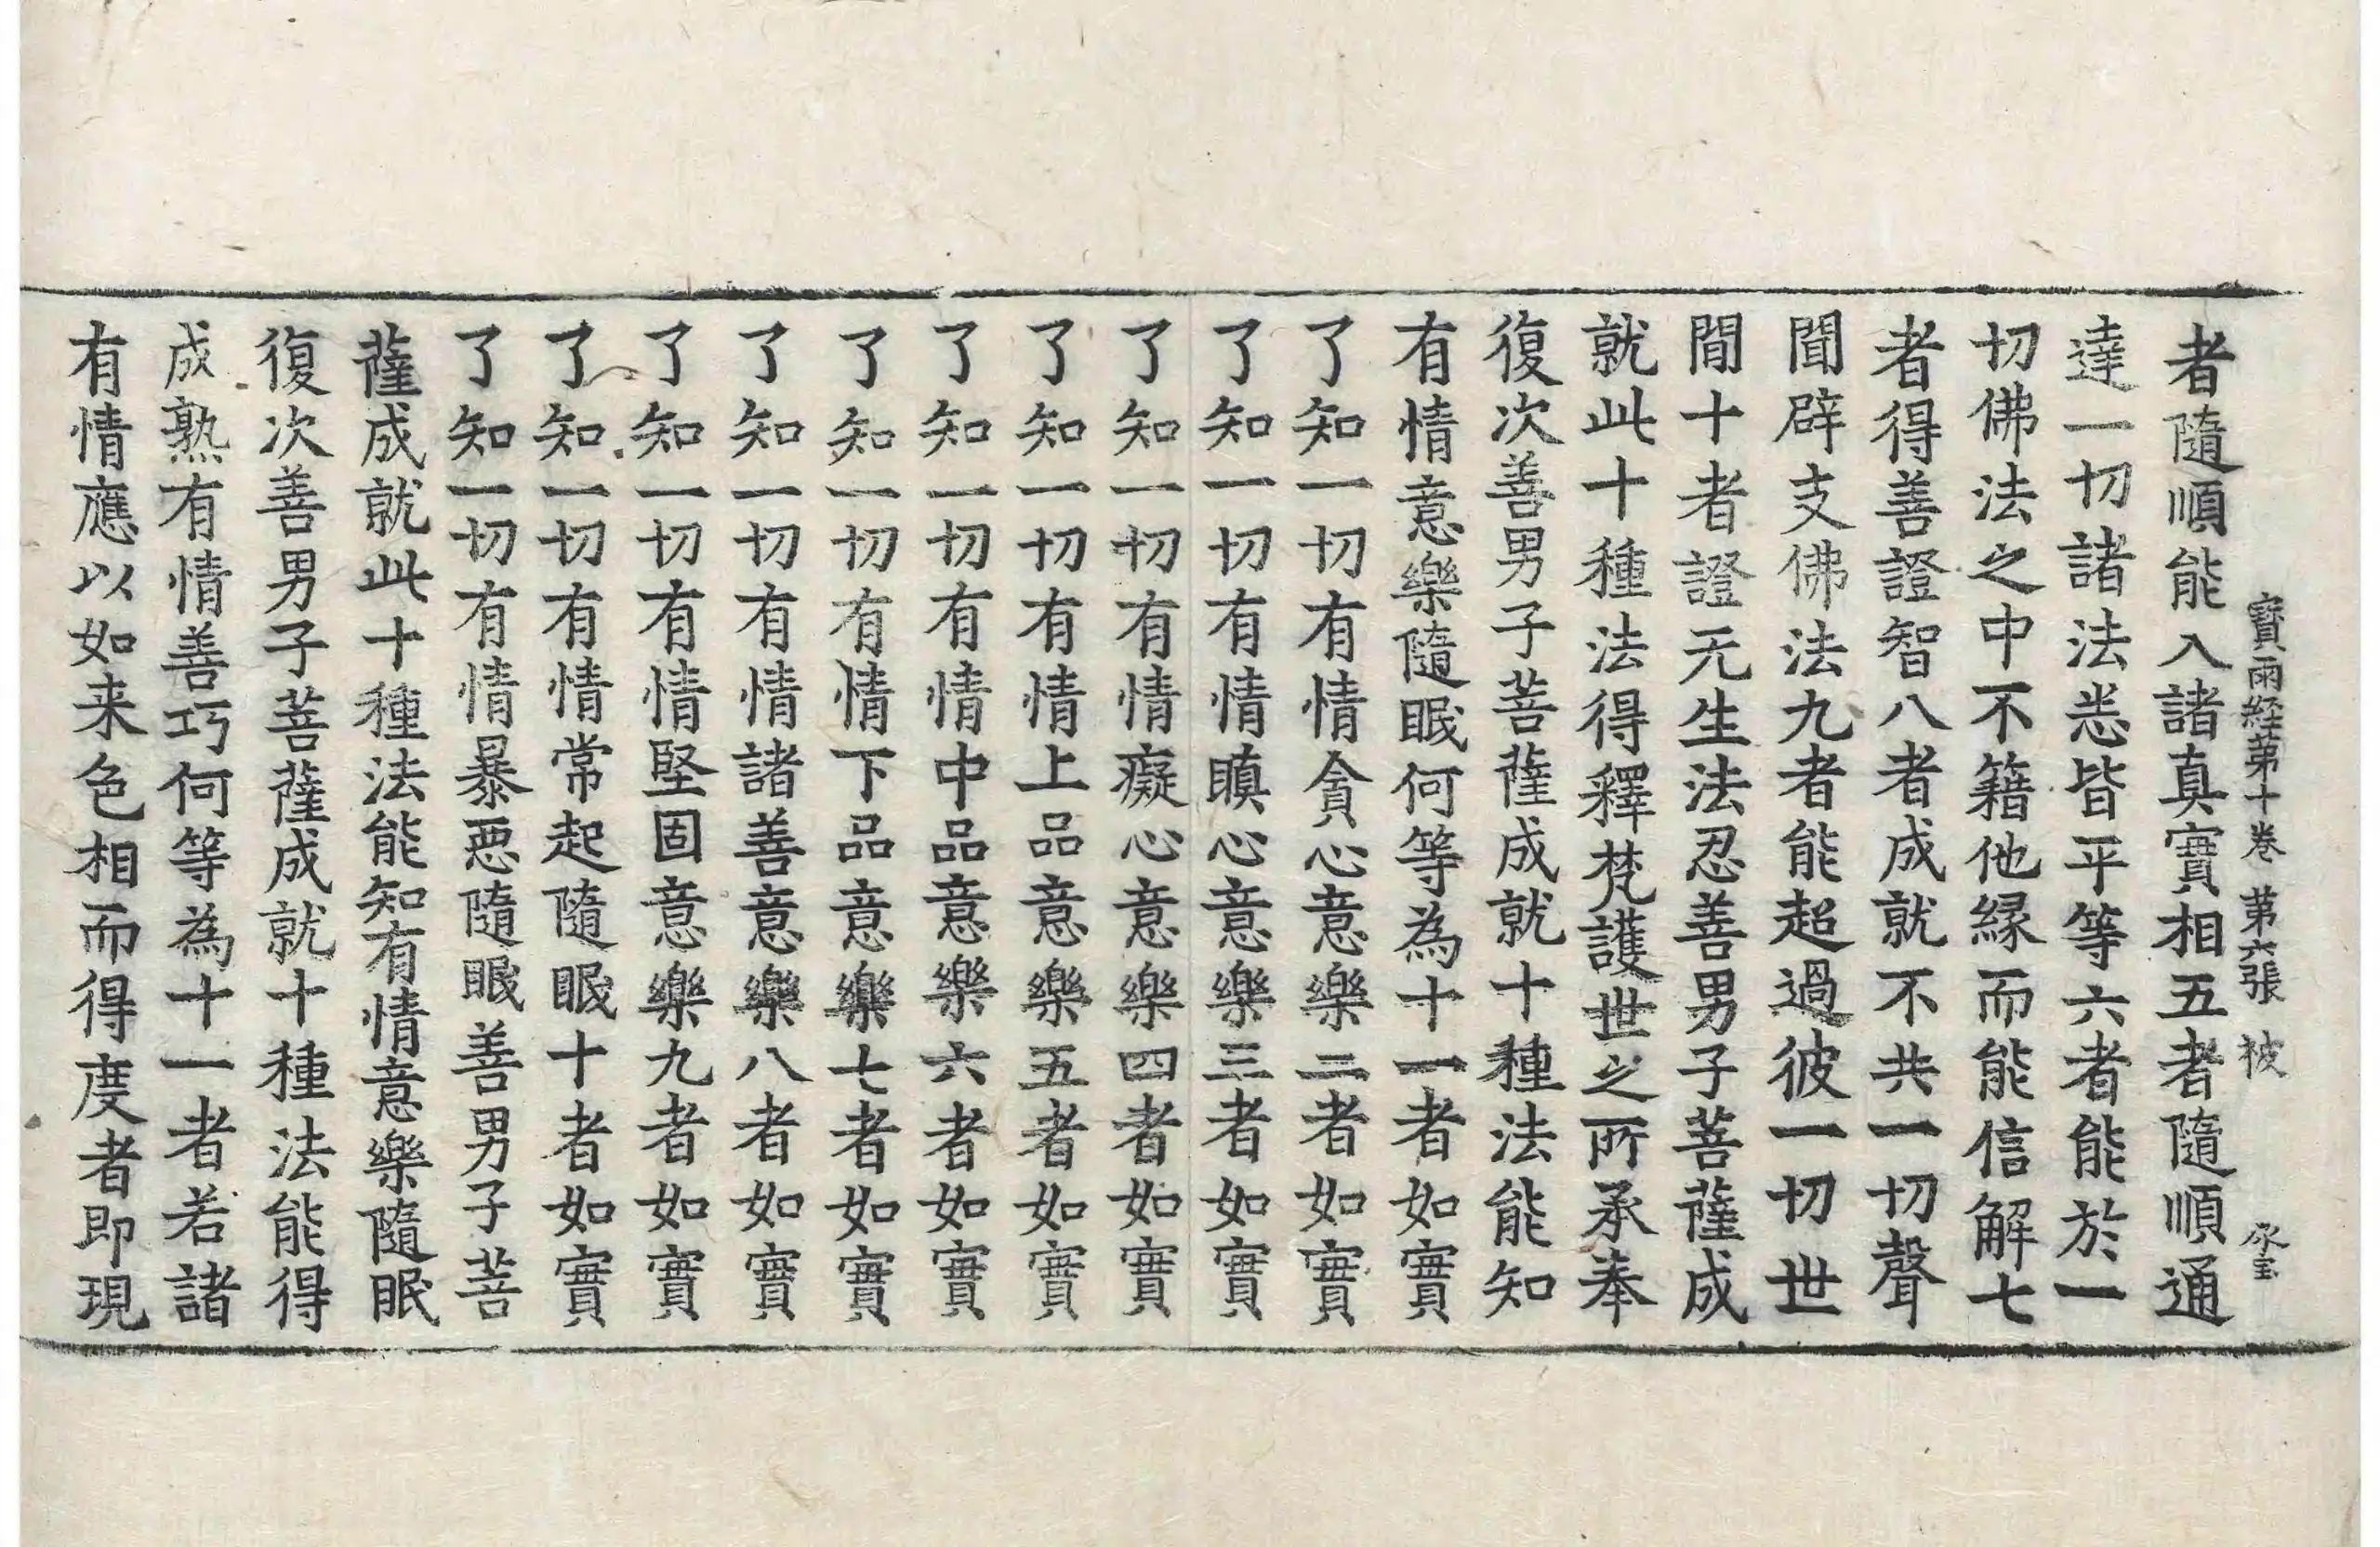 寶雨経苐十卷 苐六張 被 永宝
者隨順能入諸真實相五者隨順通
達一切諸法悉皆平等六者能於一
切佛法之中不籍他縁而能信解七
者得善證智八者成就不共一切聲
聞辟支佛法九者能超過彼一切世
間十者證无生法忍善男子菩薩成
就此十種法得釋梵護世之所承奉
復次善男子菩薩成就十種法能知
有情意樂隨眠何等為十一者如實
了知一切有情貪心意樂二者如實
了知一切有情瞋心意樂三者如實
了知一切有情癡心意樂四者如實
了知一切有情上品意樂五者如實
了知一切有情中品意樂六者如實
了知一切有情下品意樂七者如實
了知一切有情諸善意樂八者如實
了知一切有情堅固意樂九者如實
了知一切有情常起隨眠十者如實
了知一切有情暴惡隨眠善男子菩
薩成就此十種法能知有情意樂隨眠
復次善男子菩薩成就十種法能得
成熟有情善巧何等為十一者若諸
有情應以如来色相而得度者即現